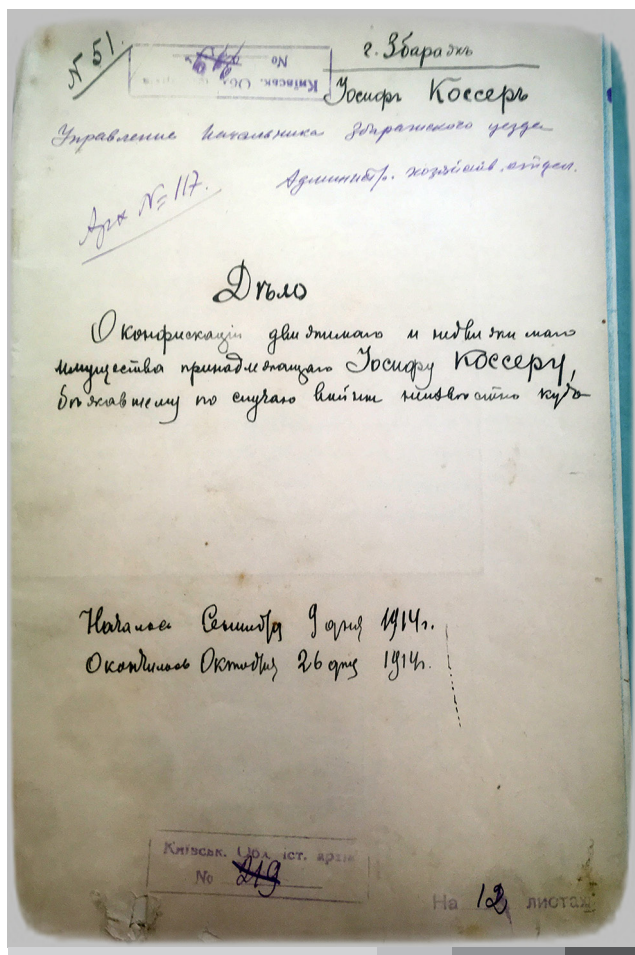 N 51.
г. Збаражъ
Київськ. Обл.
No
Іосифъ Коссеръ
Управление Начальника Збаражского уезда
Администр. хозяйств. отдел.
Арх № 117.
Дѣло
О конфискаціи движимаго и недвижимаго
имущества принадлежащаго Іосифу Коссеру,
бѣжавшему по случаю войны неизвѣстно куда
Началось Сентября 9 дня 1914г.
Окончилось Октября 26 дня 1914г.
Київськ. Обл. іст. архів
No 219
На 12 листах